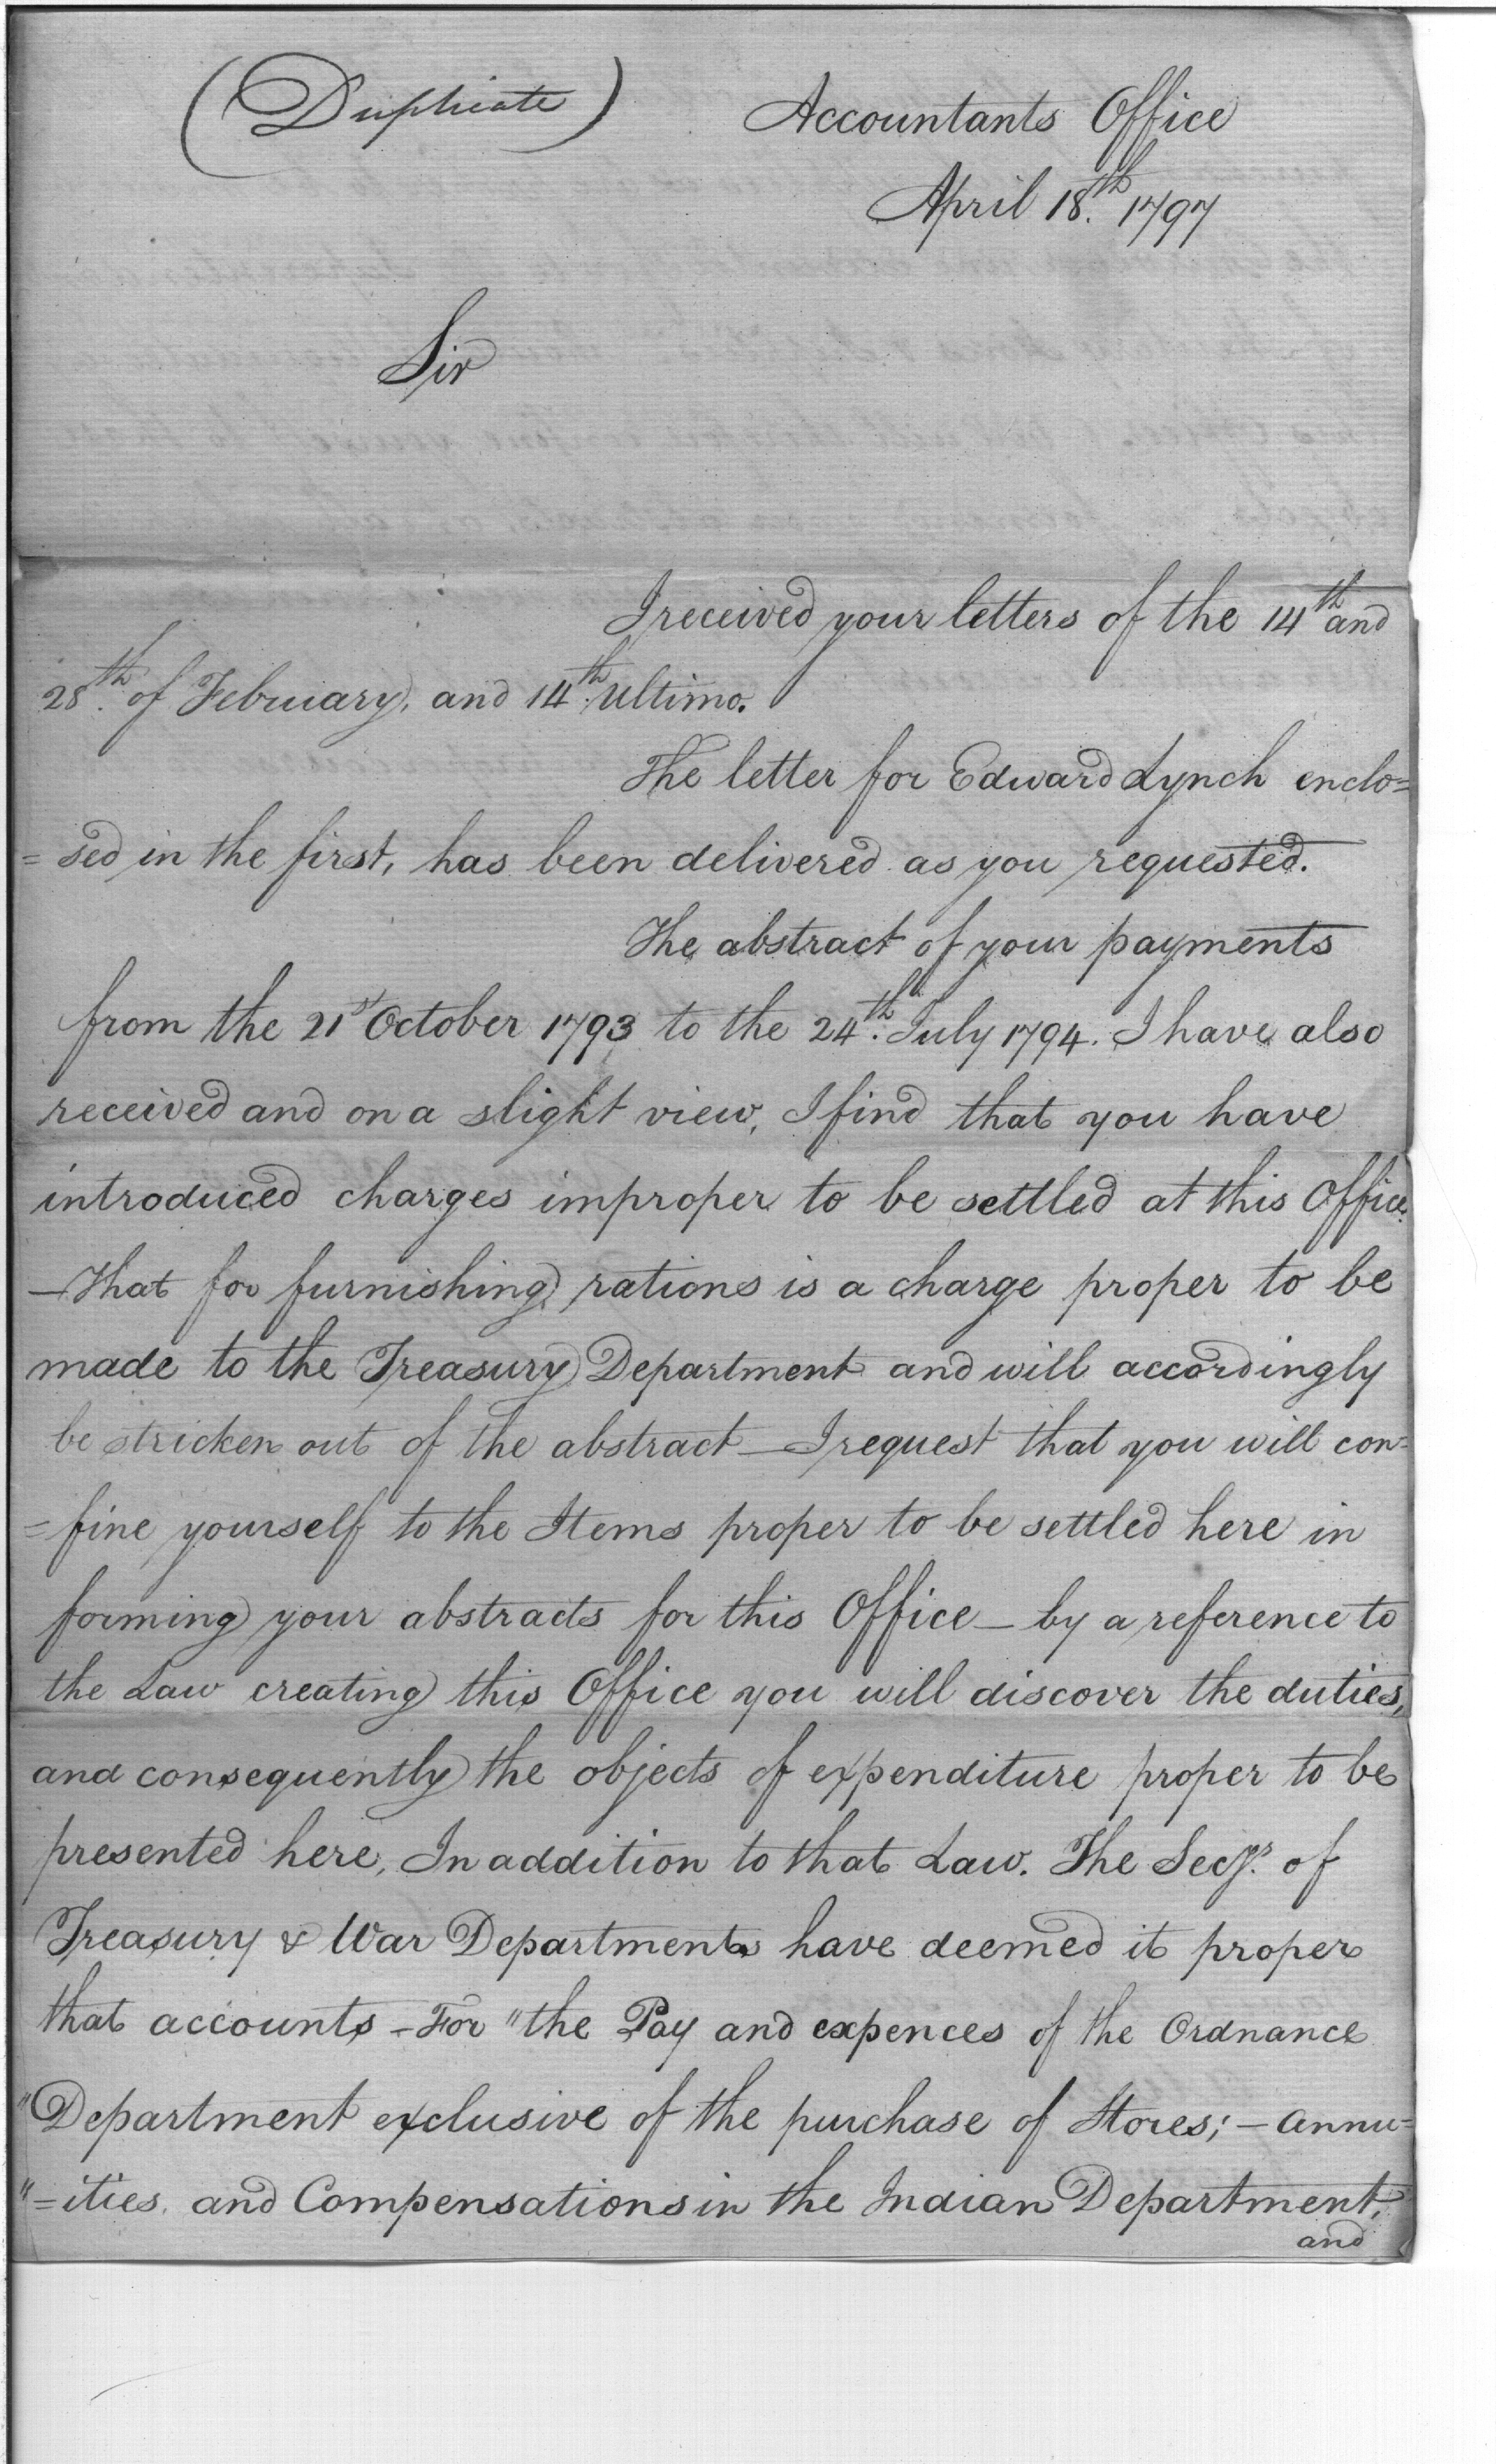 (Duplicate)
Accountants Office
April 18.th 1797
Sir
I received your letters of the 14th and
28th. of February, and 14th. Ultimo.
The letter for Edward Lynch enclo=
=sed in the first, has been delivered as you requested.
The abstract of your payments
from the 21st October 1793 to the 24th. July 1794. I have also
received and on a slight view, I find that you have
introduced charges improper to be settled at this Office.
—That for furnishing rations is a charge proper to be
made to the Treasury Department and will accordingly
be stricken out of the abstract—I request that you will con=
=fine yourself to the Items proper to be settled here in
forming your abstracts for this Office—by a reference to
the Law creating this Office you will discover the duties,
and consequently the objects of expenditure proper to be
presented here, In addition to that Law. The Secys. of
Treasury & War Departments have deemed it proper
that accounts—For "the Pay and expences of the Ordnance
"Department exclusive of the purchase of Stores;—annu=
"=ities and Compensations in the Indian Department,
and